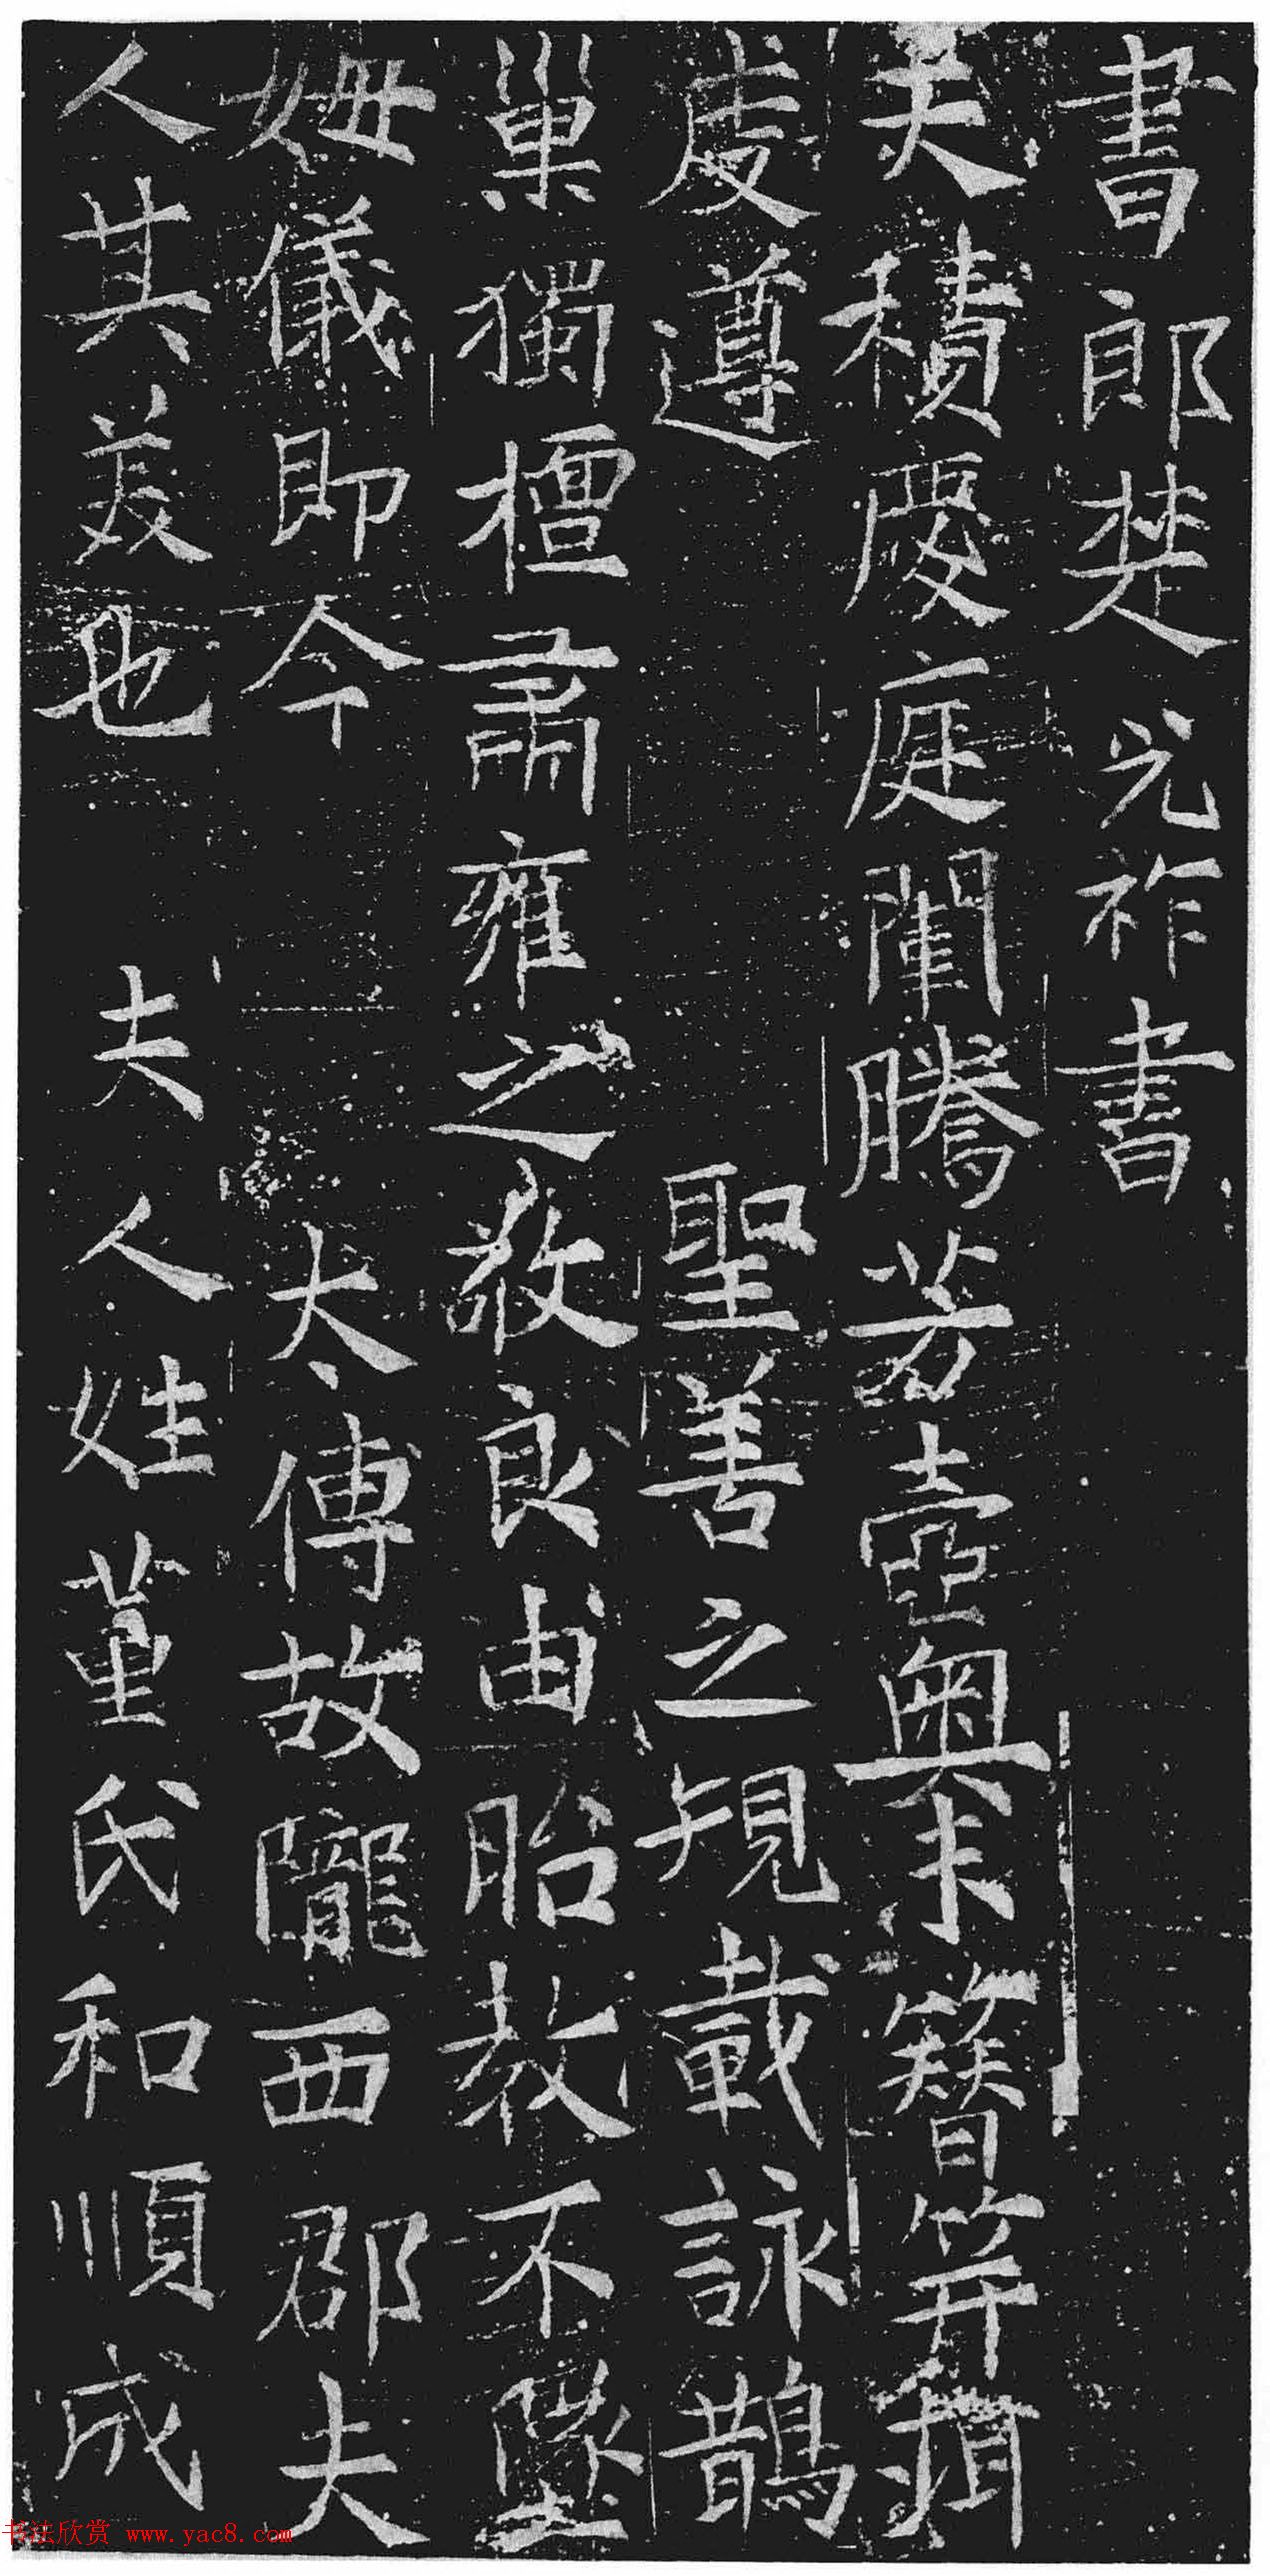 書郎楚光祚書
夫積慶庭闈騰芳壼奧末簪笄猶
虔遵聖善之規載詠鵲
巢獨檀肅雍之敬良由胎教不墜
姆儀即今太傅故隴西郡夫
人其美也夫人姓董氏和順成
书法欣赏 www.yac8.com